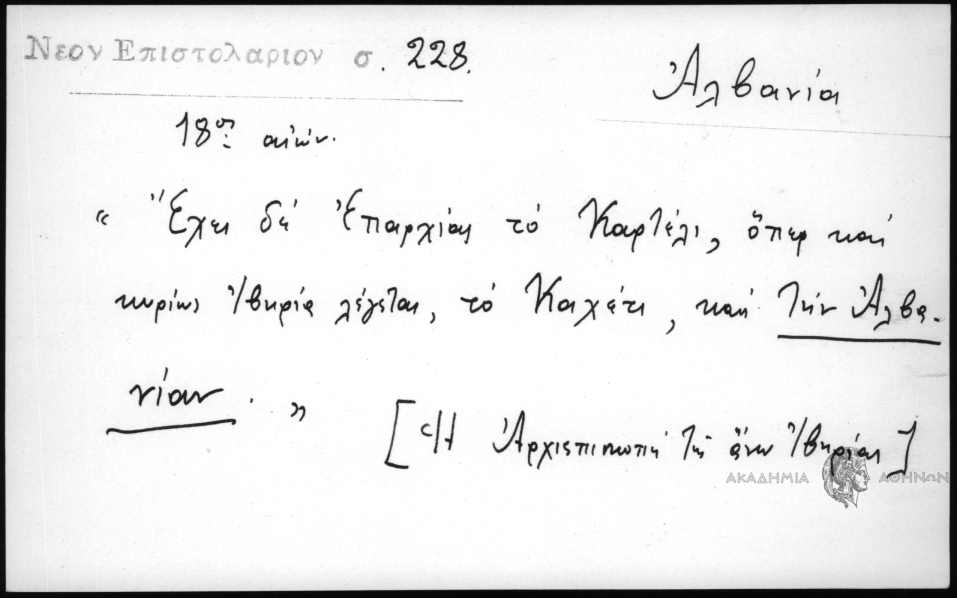 Νεον Επιστολαριον σ. 228.
Ἀλβανία
18ος αἰών.
« Ἔχει δέ Ἐπαρχίας τό Καρτέλι, ὅπερ καί
κυρίως Ἰβηρία λέγεται, τό Καχέτι, καί τήν Ἀλβα-
νίαν. »
[Ἡ Ἀρχιεπισκοπή τῆς ἄνω Ἰβηρίας]
ΑΚΑΔΗΜΙΑ ΑΘΗΝΩΝ